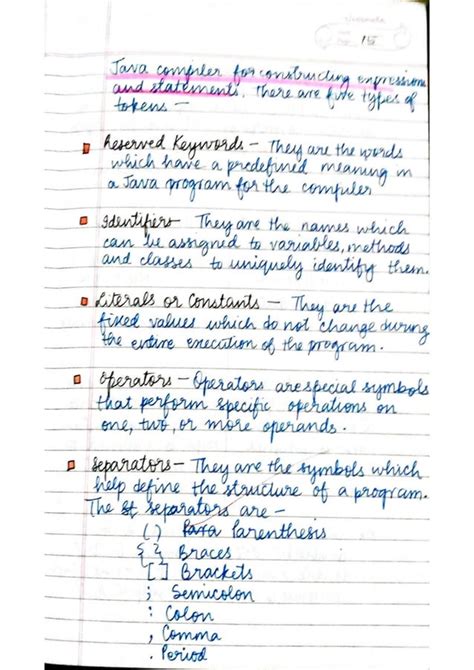 15
Java compiler for constructing expression
and statements. There are five types of
tokens -
Reserved Keywords - They are the words
which have a predefined meaning in
a Java program for the compiler
Identifiers - They are the names which
can be assigned to variables, methods
and classes to uniquely identify them.
Literals or Constants - They are the
fixed values which do not change during
the entire execution of the program.
Operators - Operators are special symbols
that perform specific operations on
one, two, or more operands.
Separators - They are the symbols which
help define the structure of a program.
The st separators are -
( ) Para Parenthesis
{ } Braces
[ ] Brackets
; Semicolon
: Colon
, Comma
. Period